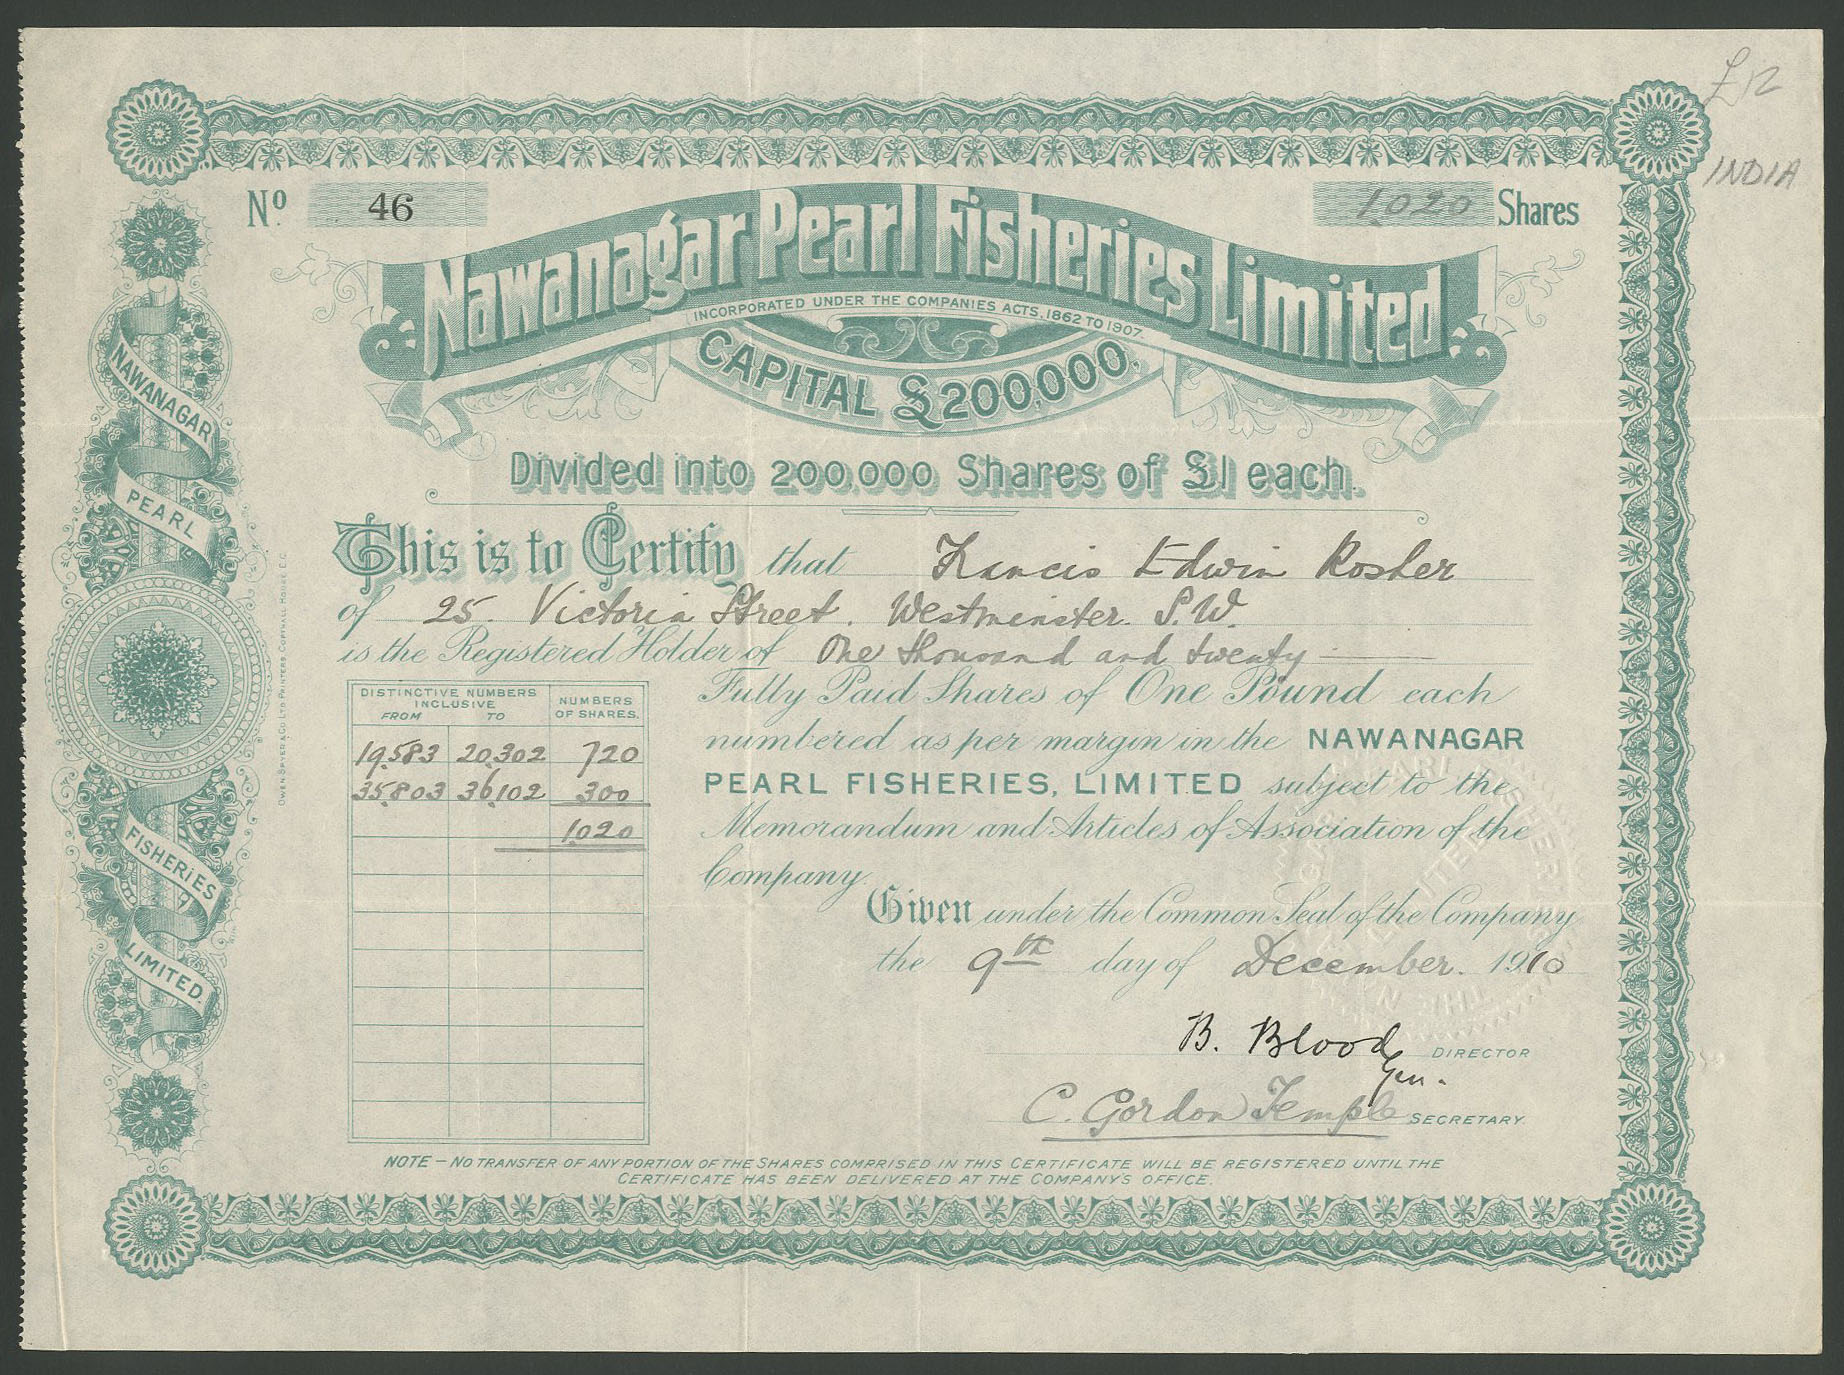 £12
INDIA
No. 46
1020 Shares
Nawanagar Pearl Fisheries Limited
INCORPORATED UNDER THE COMPANIES ACTS, 1862 TO 1907.
CAPITAL £200,000.
Divided into 200,000 Shares of £1 each.
This is to Certify that Francis Edwin Rosher
of 25. Victoria Street. Westminster. S.W.
is the Registered Holder of One thousand and twenty
Fully Paid Shares of One Pound each
numbered as per margin in the NAWANAGAR
PEARL FISHERIES, LIMITED subject to the
Memorandum and Articles of Association of the
Company.
Given under the Common Seal of the Company
the 9th day of December. 1910
B. Blood Gen. DIRECTOR
C. Gordon Temple SECRETARY
DISTINCTIVE NUMBERS INCLUSIVE NUMBERS OF SHARES.
FROM TO
19,583 20,302 720
35,803 36,102 300
1020
NOTE — NO TRANSFER OF ANY PORTION OF THE SHARES COMPRISED IN THIS CERTIFICATE WILL BE REGISTERED UNTIL THE
CERTIFICATE HAS BEEN DELIVERED AT THE COMPANY'S OFFICE.
NAWANAGAR
PEARL
FISHERIES
LIMITED.
OWEN SPYER & CO. LTD PRINTERS COPTHALL HOUSE E.C.